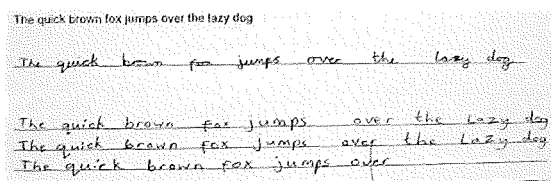 The quick brown fox jumps over the lazy dog
The quick brown fox jumps over the lazy dog
The quick brown fox jumps over the lazy dog
The quick brown fox jumps over the lazy dog
The quick brown fox jumps over